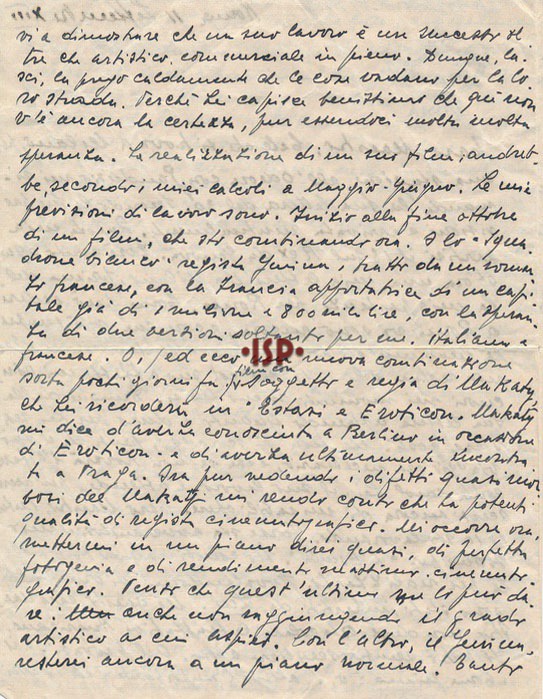 vi a dimostrare che un suo lavoro è un successo ol
tre che artistico, commerciale in pieno. Dunque, la-
sci, la prego caldamente che le cose vadano per la lo
ro strada. Perchè Lei capisce benissimo che qui non
v'è ancora la certezza, pur essendoci molta molta
speranza. La realizzazione di un suo film, andreb-
be, secondo i miei calcoli a Maggio-Giugno. Le mie
previsioni di lavoro sono. Inizio alla fine ottobre
di un film, che sto combinando ora. È lo "Squa
drone bianco" regista Genina, tratto da un roman
zo francese, con la Francia apportatrice di un capi
tale già di 1 milione e 800 mila lire, con la speran-
za di due versioni soltanto per me. Italiana e
francese. O, ed ecco nuova combinazione
ISP
film con
sorta pochi giorni fa, soggetto e regia di Makaty,
che Lei ricorderà in "Estasi e Eroticon. Makaty
mi dice d'averLa conosciuta a Berlino in occasione
di Eroticon e di averLa ultimamente incontra
ta a Praga. Ora pur vedendo i difetti quasi mor
bosi del Makaty mi rendo conto che ha potenti
qualità di regista cinematografico. Mi occorre ora,
mettermi in un piano direi quasi, di perfetta
fotogenia e di rendimento massimo cinemato-
grafico. Penso che quest'ultimo me lo può da-
re: anche non raggiungendo il grado
artistico a cui aspiro. Con l'altro, il Genina,
resterei ancora a un piano normale. Tanto